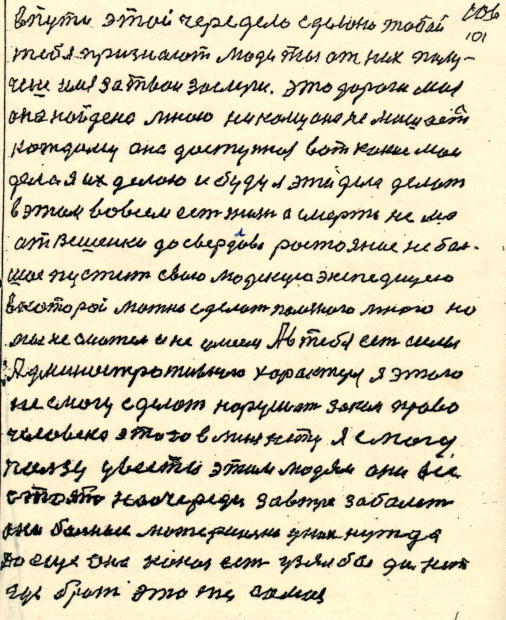 101
в пути этой чередело сделоно тобой
тебя признают люди ты от них полу-
чеш имя за твои заслуги. это дорога моя
она найдена мною никому она не мешает
каждому она доступноя вот какие мои
дела я их делою и буду я эти дела делат
в этом вовсем ест жизн а смерть не мо
от Вешенки до свердлова ростояние небол-
шое пустит свою людскую экспедицею
в которой можно сделат полезного много но
мы не сможем и не умеем А в тебя ест силы
Административную характеру я этого
не смогу сделат нарушат закон право
человека этого в миня нету я смогу
ползу увести этим людям они все
стоять на очереди завтре заболет
они болные материяльно у них нужда
во ещё она какая ест узял бы да нет
где брат это не